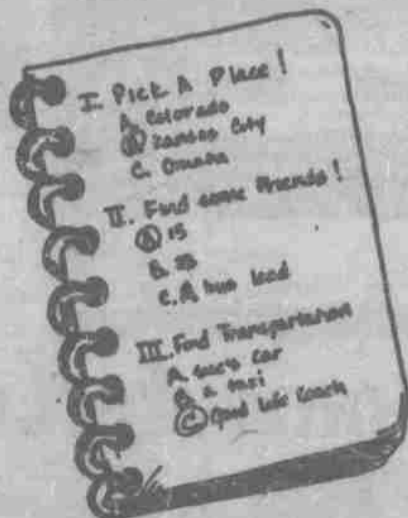 I. Pick A Place!
A. Colorado
B Kansas City
C. Omaha
II. Find some Friends!
A 15
B. 25
C. A bus load
III. Find Transportation
A. car
B. a taxi
C Good Life Coach